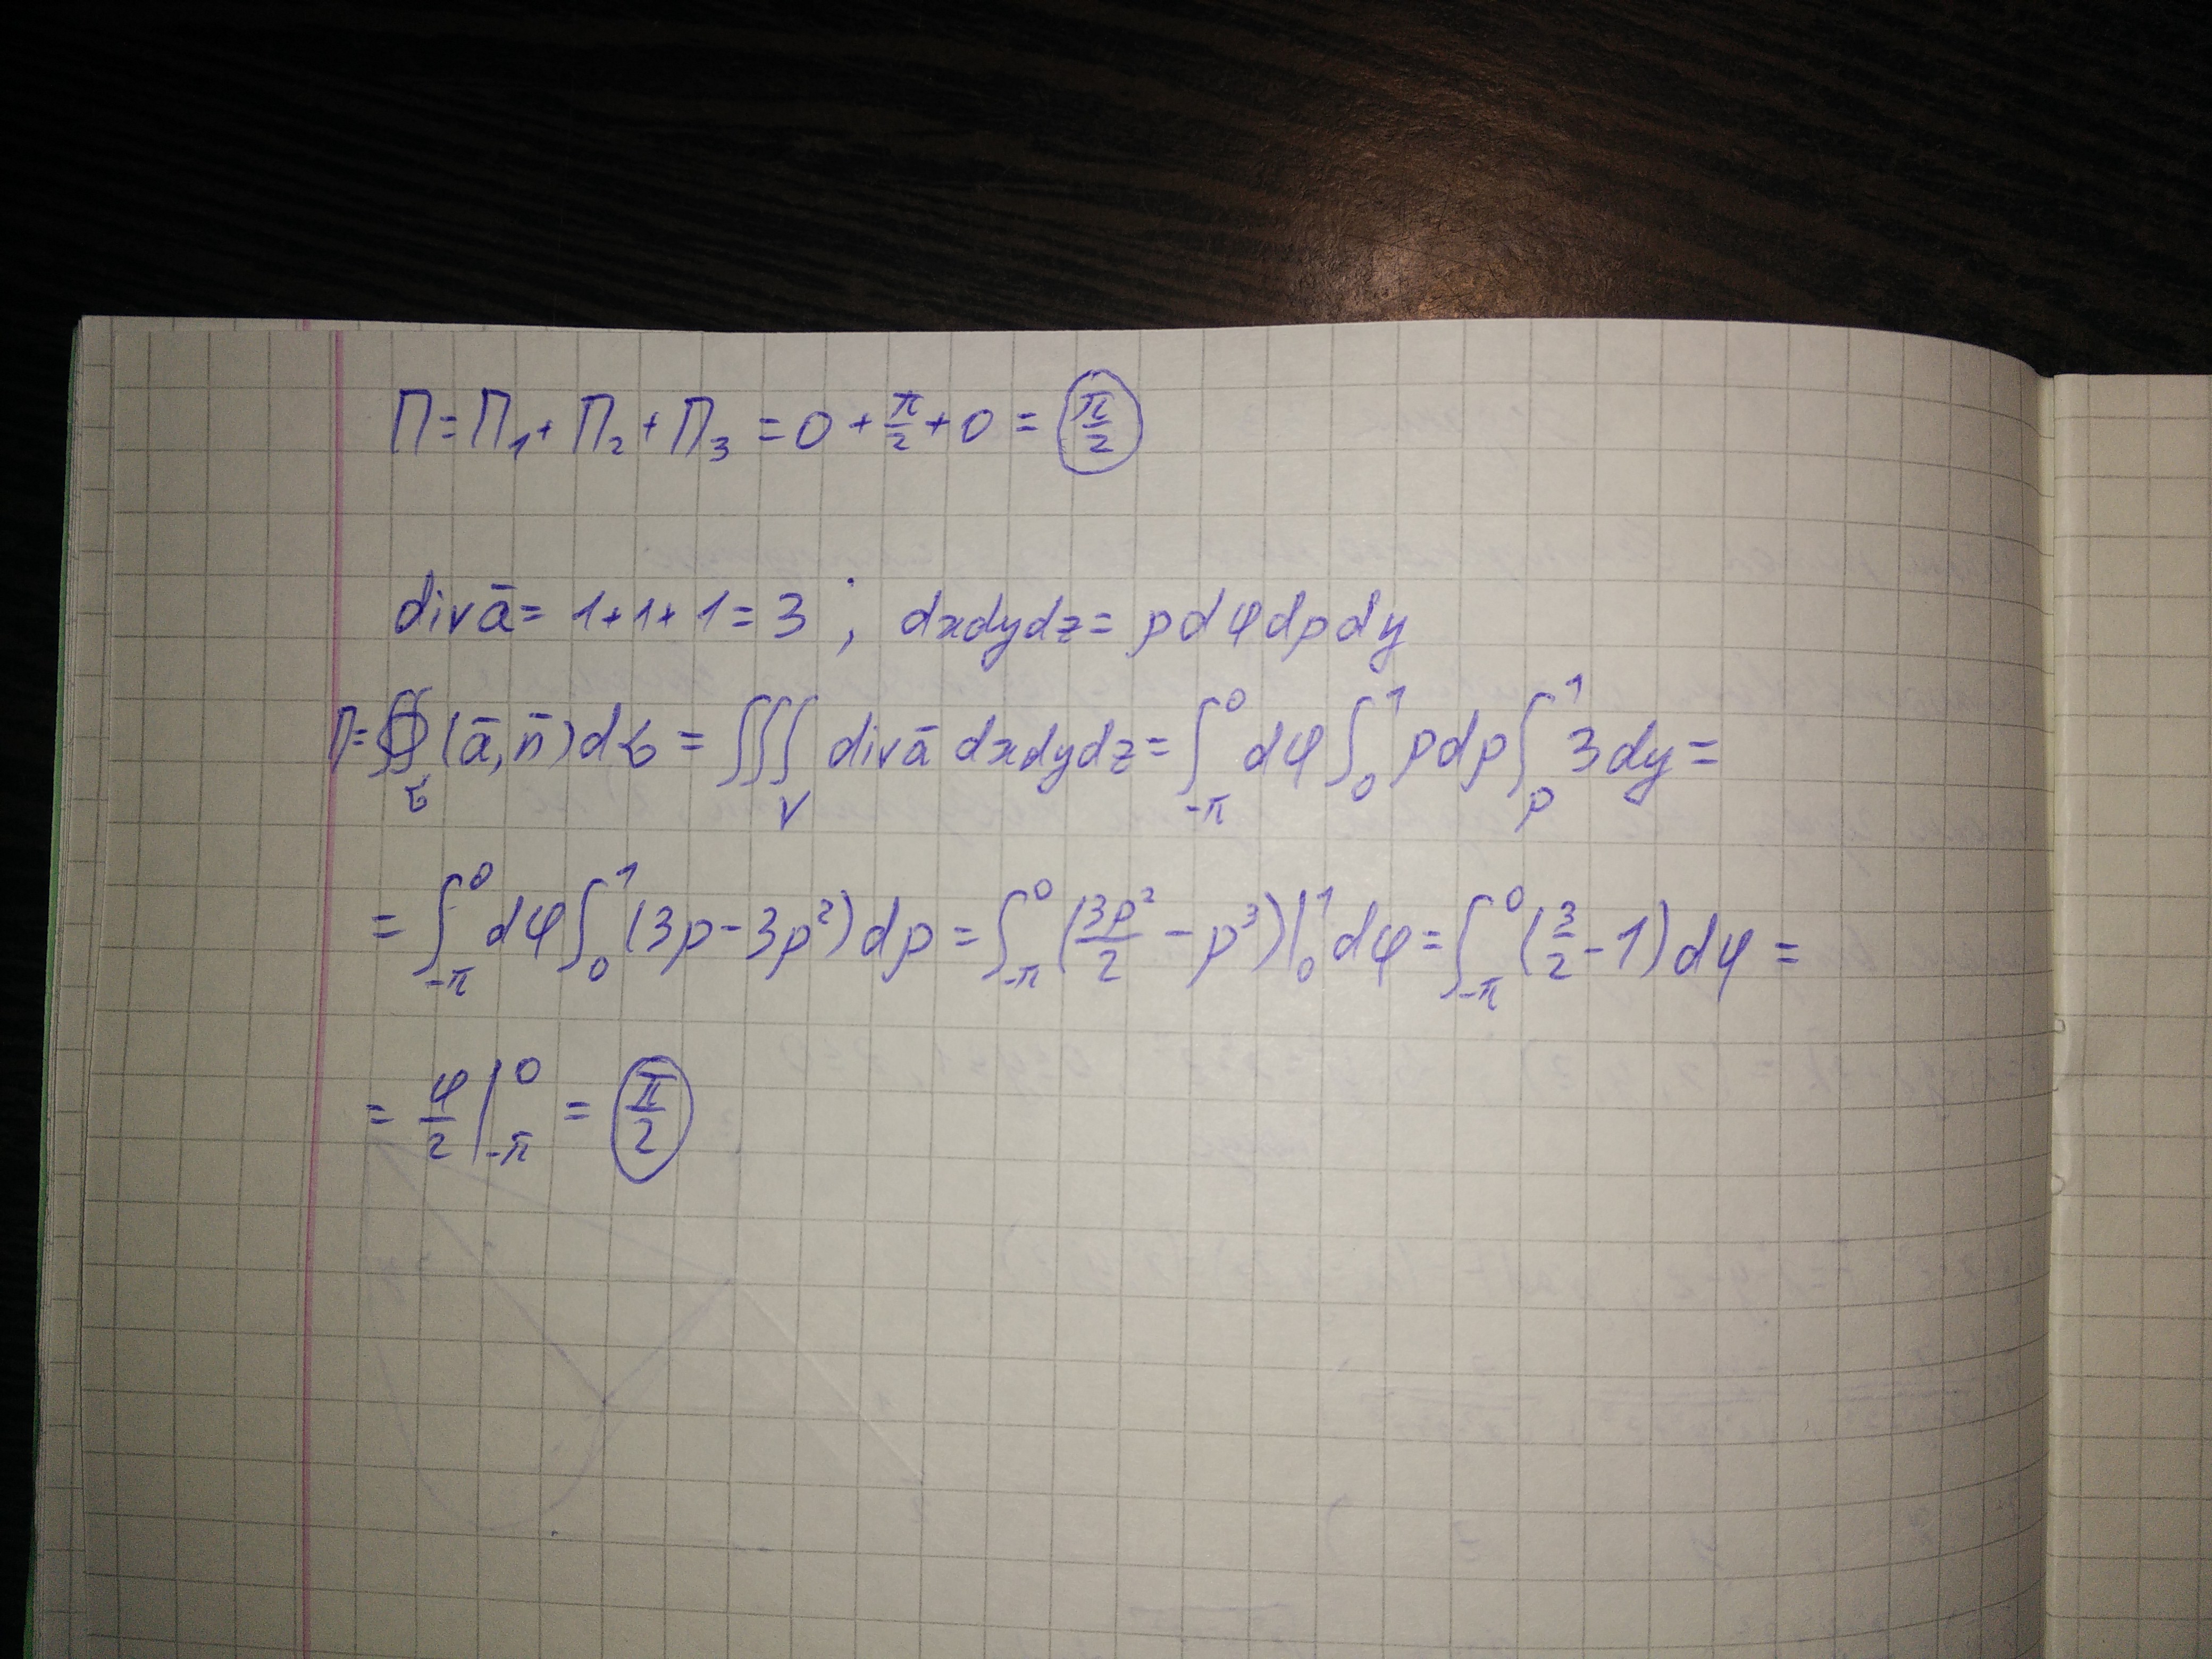 П = П₁ + П₂ + П₃ = 0 + π/2 + 0 = π/2
div ā = 1+1+1 = 3 ; dxdydz = ρdφdρdy
П = ∯_σ (ā, n̄)dσ = ∭_V div ā dxdydz = ∫_{-π}^{0} dφ ∫_{0}^{1} ρdρ ∫_{ρ}^{1} 3dy =
= ∫_{-π}^{0} dφ ∫_{0}^{1} (3ρ - 3ρ²)dρ = ∫_{-π}^{0} (3ρ²/2 - ρ³)|_{0}^{1} dφ = ∫_{-π}^{0} (3/2 - 1)dφ =
= φ/2 |_{-π}^{0} = π/2